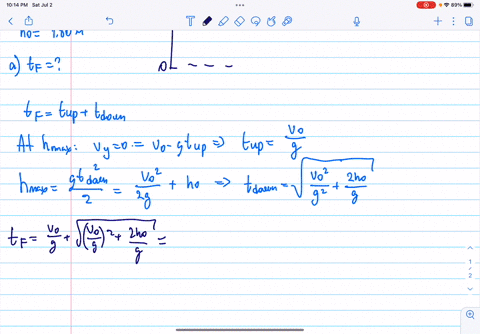 10:14 PM Sat Jul 2
89%
h0= 1,80 M
a) tF=?
0
tF= tup+ tdown
At hmax: vy=0 = v0- gtup => tup= v0/g
hmax= gtdown²/2 = v0²/2g + h0 => tdown= √(v0²/g² + 2h0/g)
tF= v0/g + √((v0/g)² + 2h0/g) =
1
2